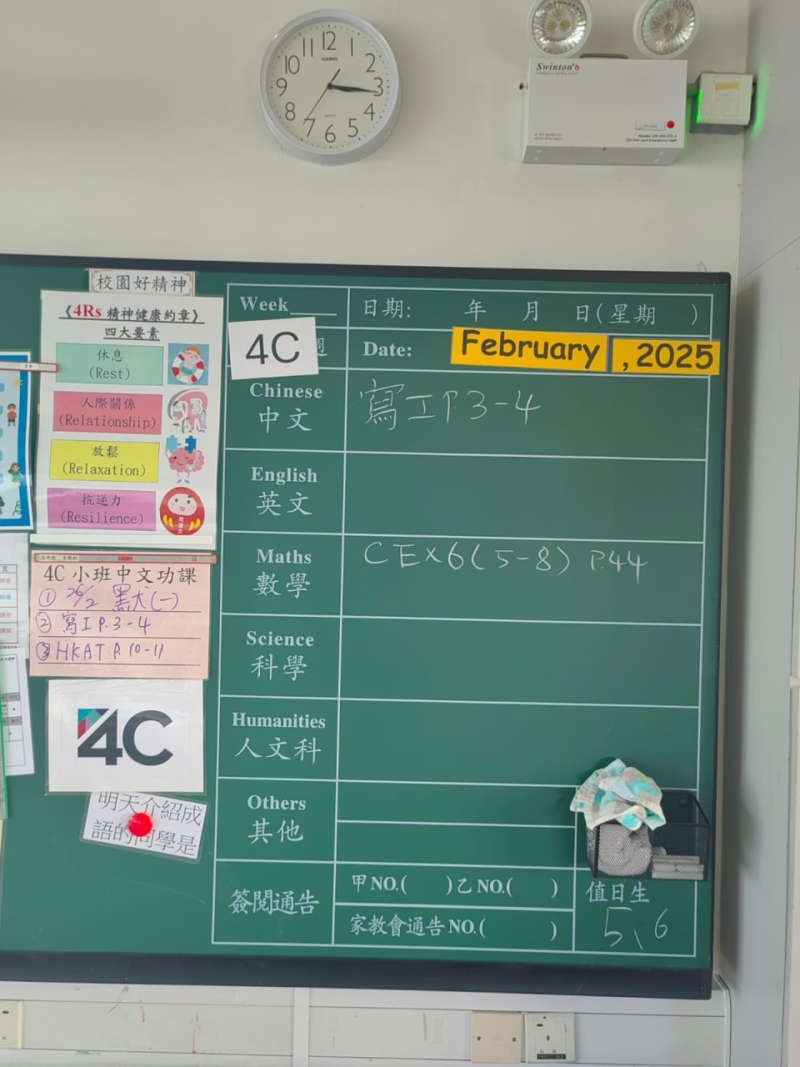 12
1
2
3
4
5
6
7
8
9
10
11
CASIO
Swinton
校園好精神
《4Rs 精神健康約章》
四大要素
休息
(Rest)
人際關係
(Relationship)
放鬆
(Relaxation)
抗逆力
(Resilience)
4C 小班中文功課
① 26/2 黑犬(一)
② 寫工 P.3-4
③ HKAT P.10-11
4C
明天介紹成
語的同學是
Week
日期: 年 月 日(星期 )
4C
週
Date: February , 2025
Chinese
中文
寫工 P.3-4
English
英文
Maths
數學
CEx6(5-8) P.44
Science
科學
Humanities
人文科
Others
其他
簽閱通告
甲NO.( )乙NO.( )
家教會通告NO.( )
值日生
5、6